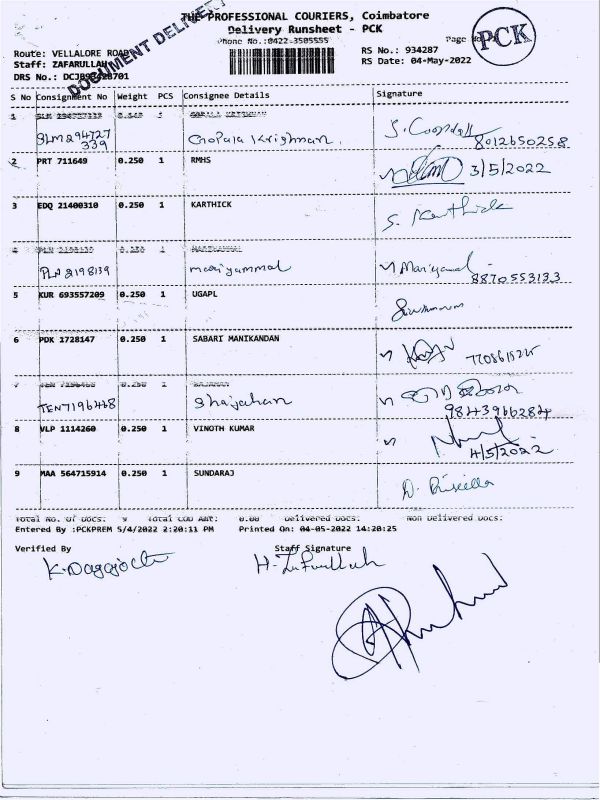 THE PROFESSIONAL COURIERS, Coimbatore
Delivery Runsheet - PCK
DOCUMENT DELIVERY
PCK
Phone No.:0422-3505555
Page No
Route: VELLALORE ROAD
RS No.: 934287
Staff: ZAFARULLAH
RS Date: 04-May-2022
DRS No.:
S No Consignment No Weight PCS Consignee Details Signature
1
SLM 294727 339 Gopala Krishnan. 8012650258
2 PRT 711649 0.250 1 RMHS 3/5/2022
3 EDQ 21400310 0.250 1 KARTHICK S. Karthick
PLN 2198139 mariyammal Mariyammal 8870553133
5 KUR 693557209 0.250 1 UGAPL
6 PDK 1728147 0.250 1 SABARI MANIKANDAN
TEN 7196468 Shajahan 9843966284
8 VLP 1114260 0.250 1 VINOTH KUMAR 4/5/2022
9 MAA 564715914 0.250 1 SUNDARAJ D. Priscella
Total No. Of Docs: 9 Total COD Amt: 0.00 Delivered Docs: Non Delivered Docs:
Entered By :PCKPREM 5/4/2022 2:20:11 PM Printed On: 04-05-2022 14:20:25
Verified By Staff Signature